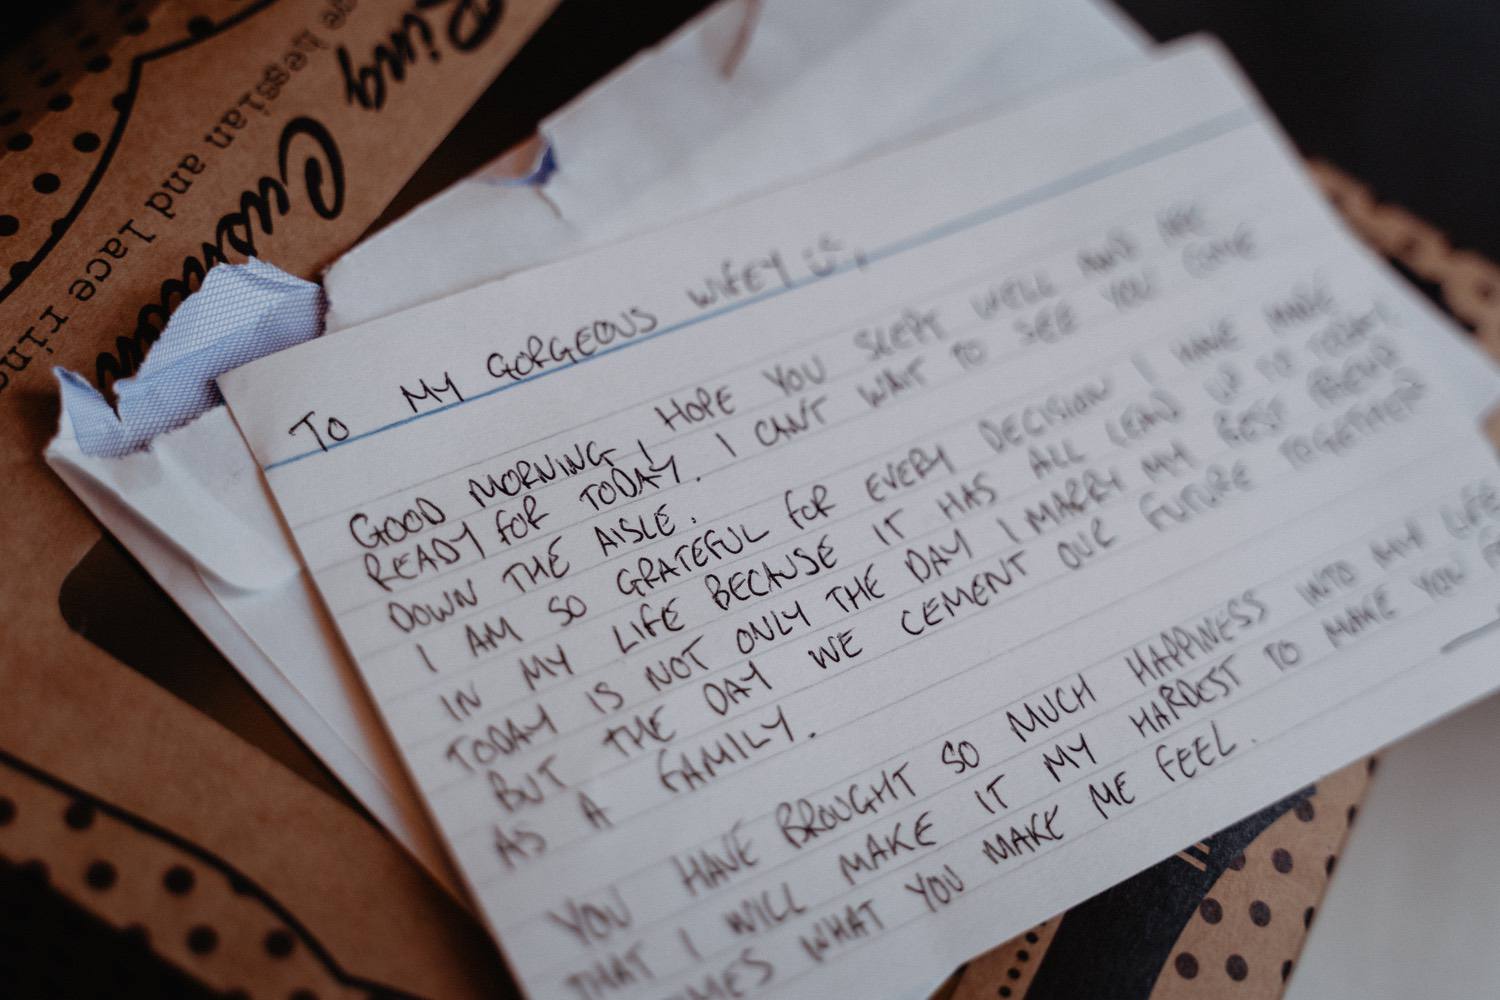 Ring Cushion
hessian and lace ring
TO MY GORGEOUS WIFEY
GOOD MORNING, I HOPE YOU SLEPT WELL AND ARE
READY FOR TODAY. I CANT WAIT TO SEE YOU COME
DOWN THE AISLE.
I AM SO GRATEFUL FOR EVERY DECISION I HAVE MADE
IN MY LIFE BECAUSE IT HAS ALL LEAD UP TO TODAY.
TODAY IS NOT ONLY THE DAY I MARRY MY BEST FRIEND
BUT THE DAY WE CEMENT OUR FUTURE TOGETHER
AS A FAMILY.
YOU HAVE BROUGHT SO MUCH HAPPINESS INTO MY LIFE
THAT I WILL MAKE IT MY HARDEST TO MAKE YOU
WHAT YOU MAKE ME FEEL.